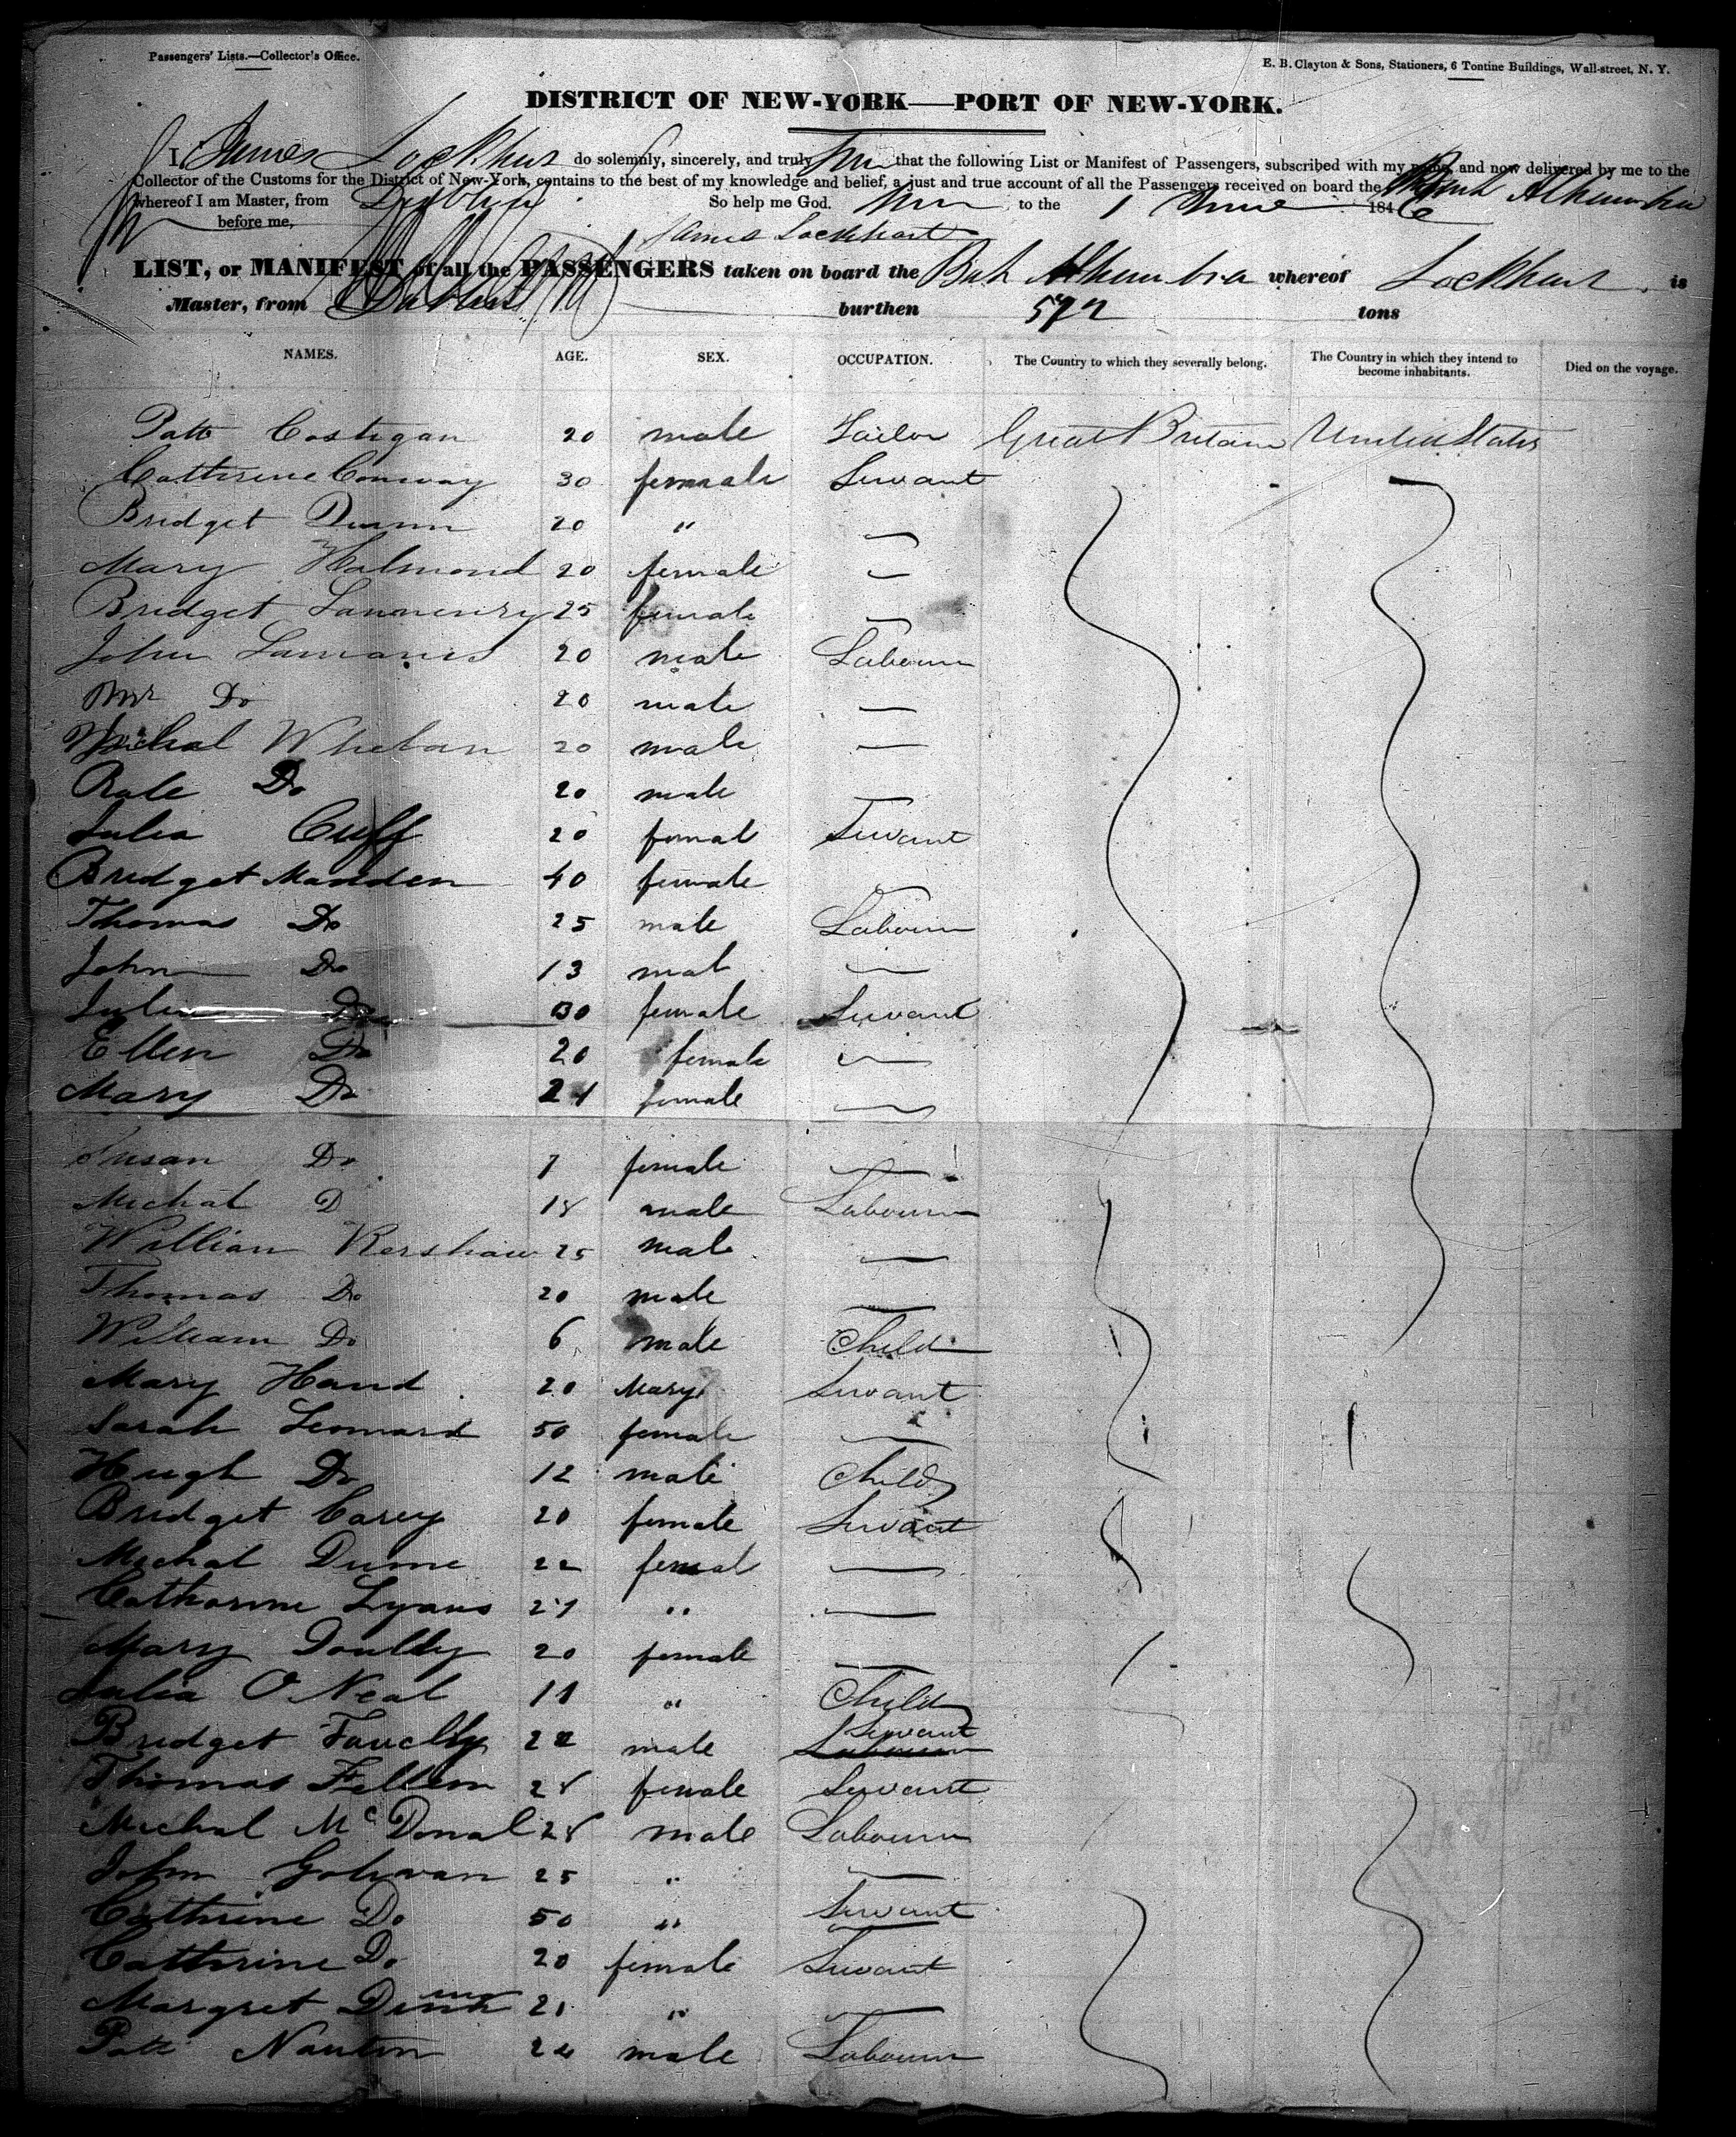 Passengers' Lists.—Collector's Office.
E. B. Clayton & Sons, Stationers, 6 Tontine Buildings, Wall-street, N. Y.
DISTRICT OF NEW-YORK—PORT OF NEW-YORK.
I, James Lockhart do solemnly, sincerely, and truly that the following List or Manifest of Passengers, subscribed with my name, and now delivered by me to the
Collector of the Customs for the District of New-York, contains to the best of my knowledge and belief, a just and true account of all the Passengers received on board the Alhambra
whereof I am Master, from Dublin So help me God. to the 1 June 1846
before me, James Lockhart
LIST, or MANIFEST of all the PASSENGERS taken on board the Bark Alhambra whereof Lockhart is
Master, from Dublin burthen 572 tons
NAMES. AGE. SEX. OCCUPATION. The Country to which they severally belong. The Country in which they intend to become inhabitants. Died on the voyage.
Patt Costigan 20 male Tailor Great Britain United States
Catherine Conway 30 female Servant
Bridget Dunn 20 "
Mary Halmond 20 female
Bridget 25 female
John 20 male Labourer
Do 20 male
Michal Whelan 20 male
Do 20 male
Julia Cuff 20 femal Servant
Bridget Madden 40 female
Thomas Do 25 male Labourer
John Do 13 mal
Julia Do 30 female Servant
Ellen Do 20 female
Mary Do 21 female
Susan Do 7 female
Michal D 18 male Labourer
William Kershaw 25 male
Thomas Do 20 male
William Do 6 male Child
Mary Hand 20 Mary Servant
Sarah Leonard 50 female
Hugh Do 12 male Child
Bridget Carey 20 female Servant
Michal Dunne 22 femal
Catharine Lyans 21 "
Mary 20 female
Julia O Neal 11 " Child
Bridget 22 male Servant
Thomas 28 female Servant
Michal McDonal 28 male Labourer
John 25 "
Cathrine Do 50 " Servant
Cathrine Do 20 female Servant
Margret 21 "
Patt Naulin 24 male Labourer